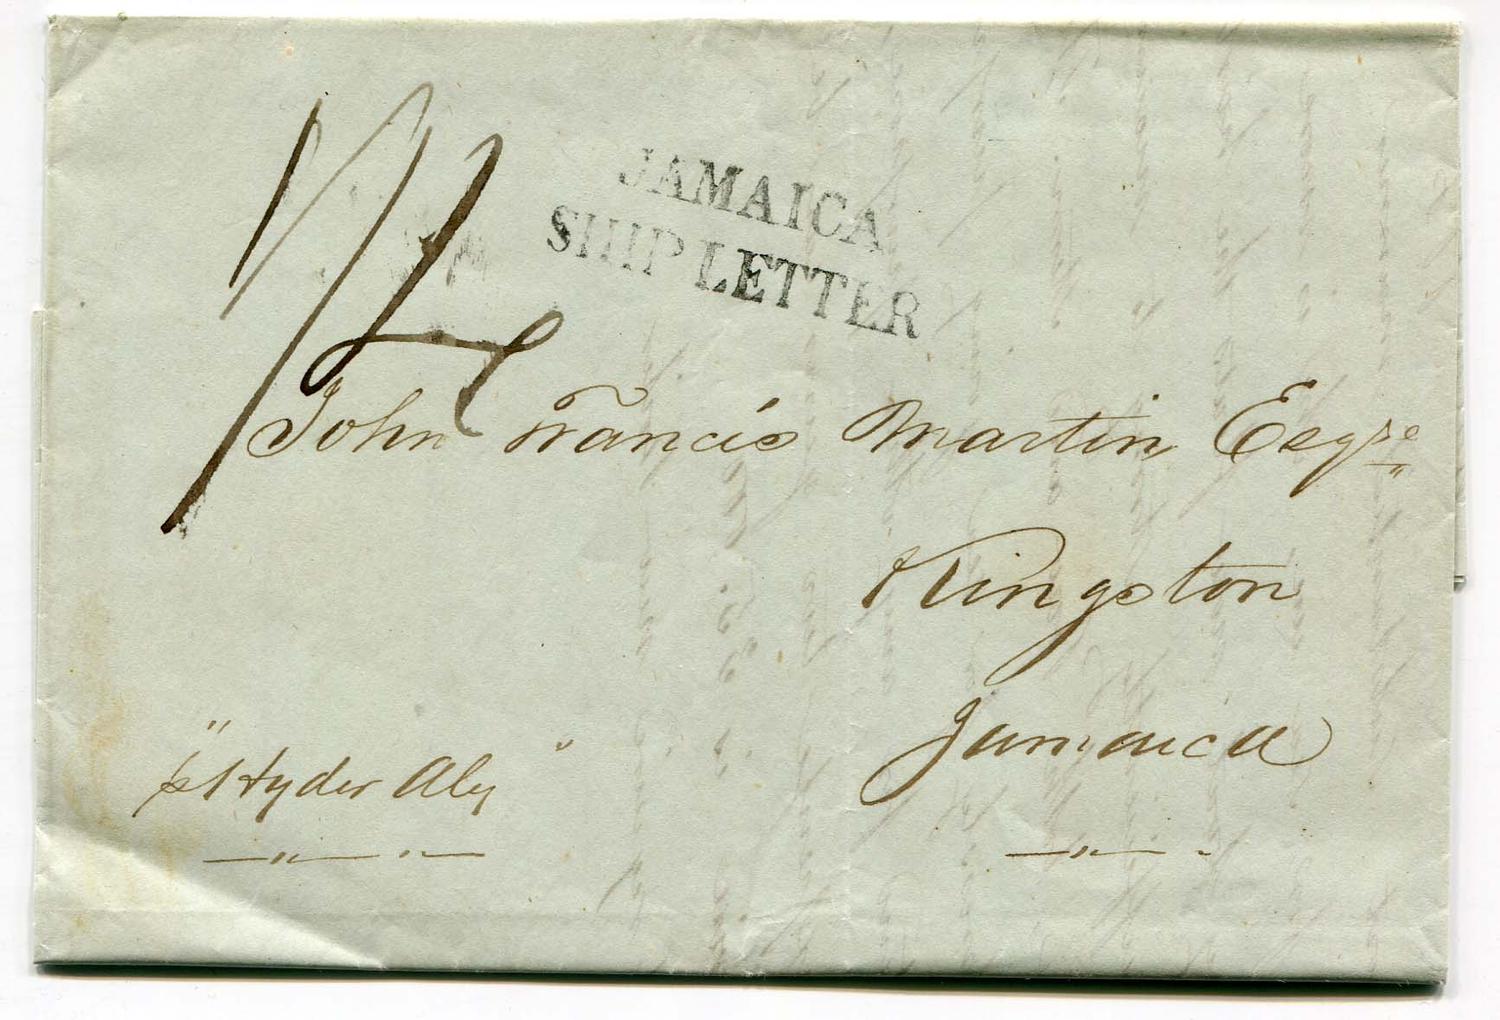 1/4
JAMAICA
SHIP LETTER
John Francis Martin Esqre
Kingston
Jamaica
"
p Hyder Aly "